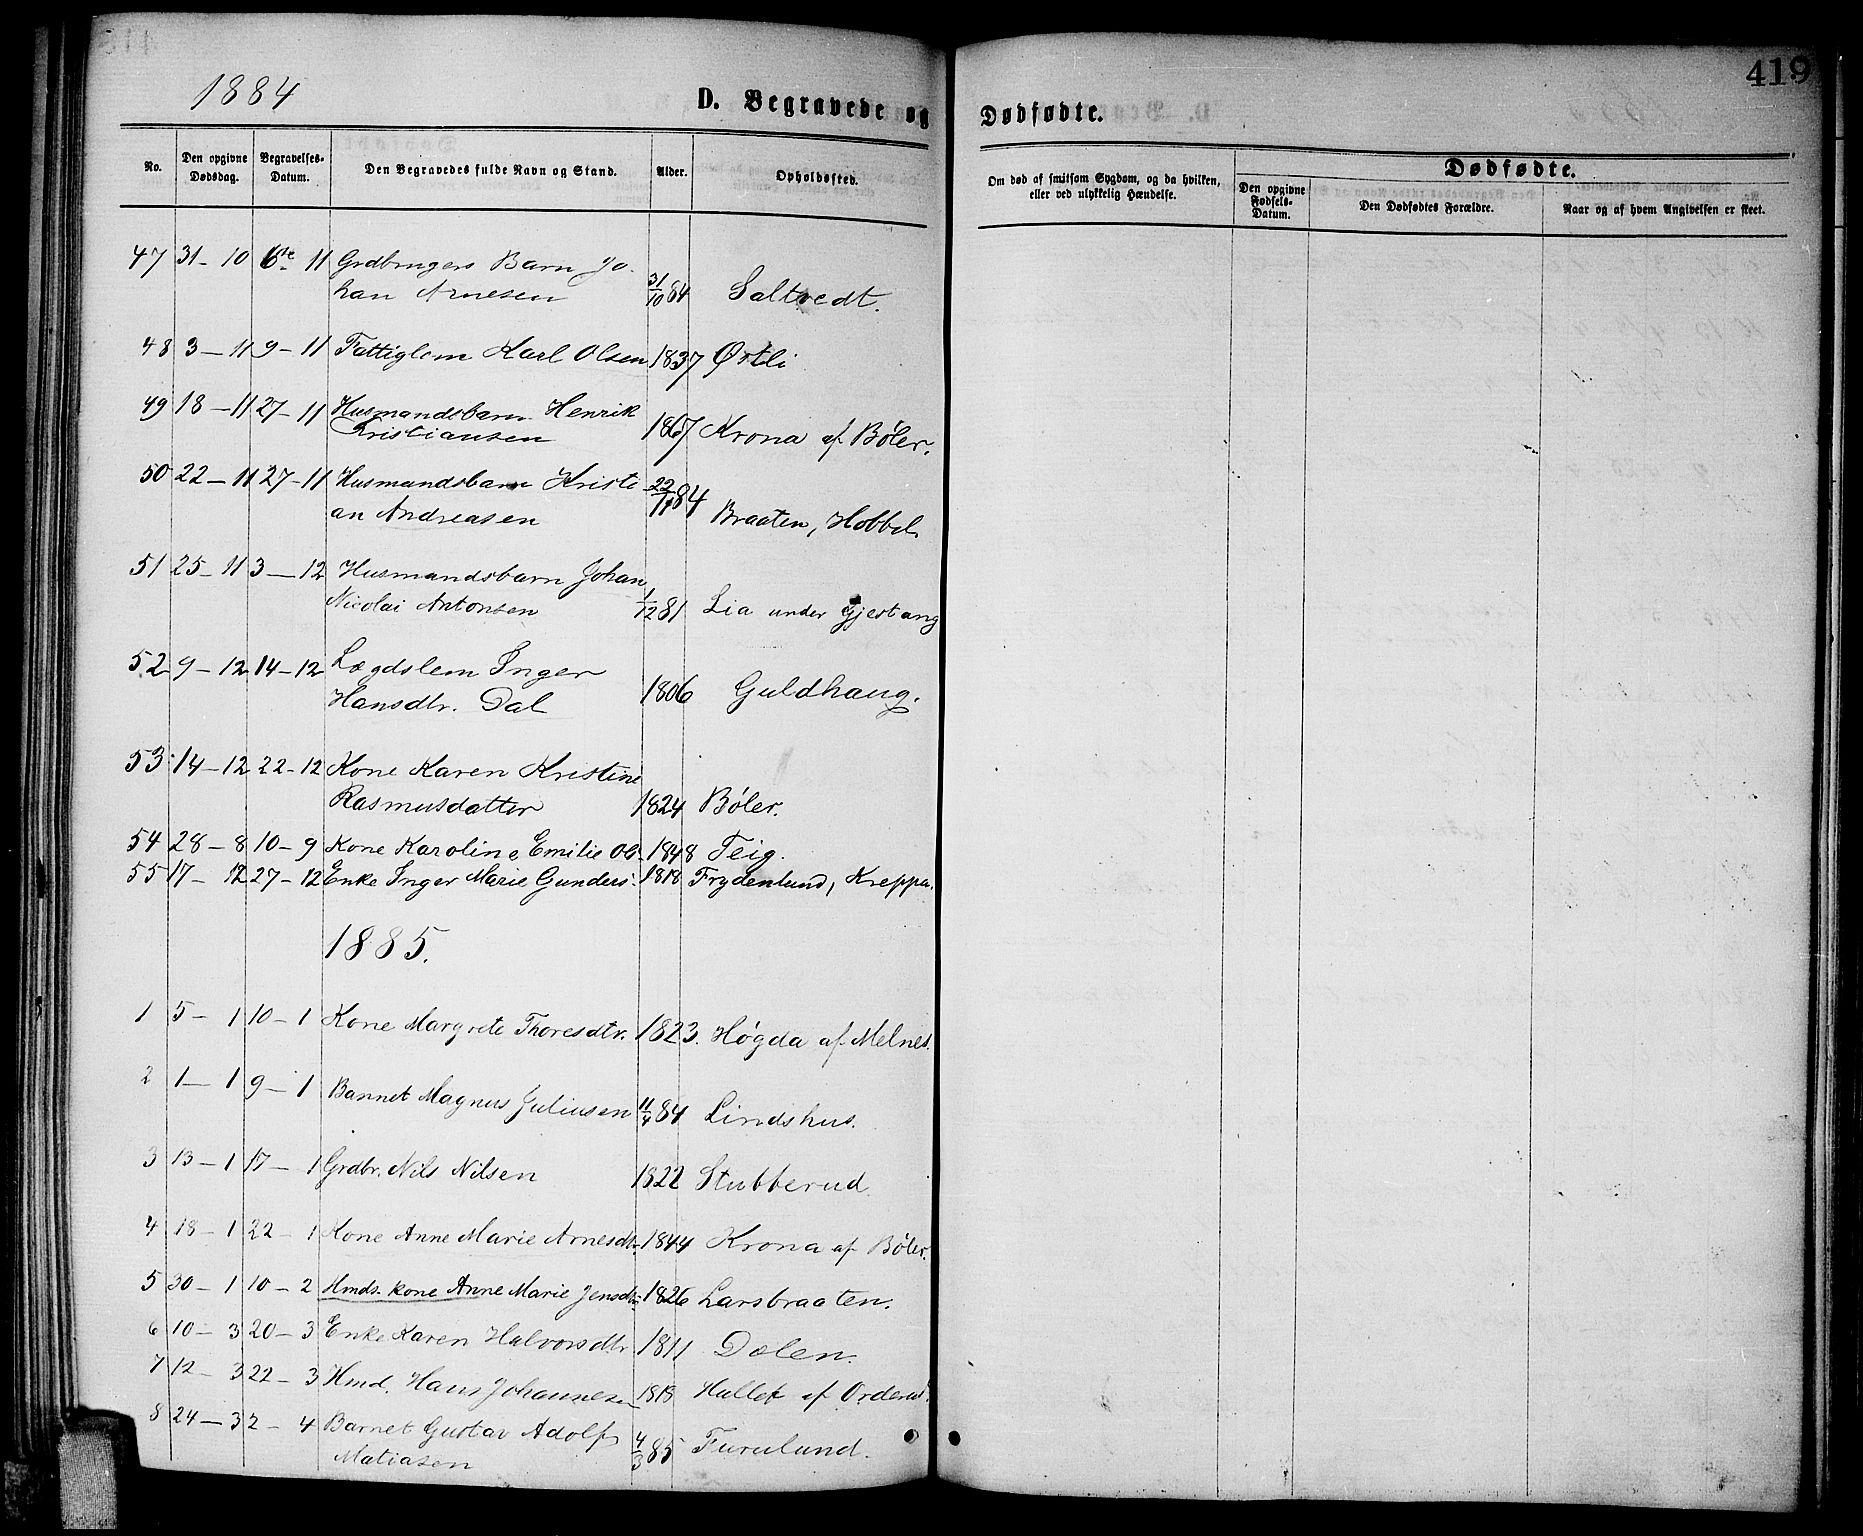 1884
D. Begravede og
Dødfødte.
419
No.
Den opgivne Dødsdag.
Begravelses-Datum.
Den Begravedes fulde Navn og Stand.
Alder.
Opholdssted.
Om død af smitsom Sygdom, og da hvilken, eller ved ulykkelig Hændelse.
Dødfødte.
Den opgivne Fødsels-Datum.
Den Dødfødtes Forældre.
Naar og af hvem Angivelsen er skeet.
47 31-10 6te 11 Grdbrugers Barn Jo-
han Arnesen 31/10 84 Saltvedt.
48 3-11 9-11 Fattiglem Karl Olsen 1837 Østli
49 18-11 27-11 Husmandsbarn Henrik
Kristiansen 1867 Krona af Bøler.
50 22-11 27-11 Husmandsbarn Kristi
an Andreasen 22/11 84 Braaten, Hobbøl.
51 25-11 3-12 Husmandsbarn Johan
Nicolai Antonsen 1/12 81 Lia under Gjestang
52 9-12 14-12 Lægdslem Inger
Hansdtr. Dal 1806 Guldhaug.
53 14-12 22-12 Kone Karen Kristine
Rasmusdatter 1824 Bøler.
54 28-8 10-9 Kone Karoline Emilie Ol- 1848 Teig.
55 17-12 27-12 Enke Inger Marie Gunders: 1818 Frydenlund, Kreppa.
1885.
1 5-1 10-1 Kone Margrete Thoresdtr. 1823. Høgda af Melnes.
2 1-1 9-1 Barnet Magnus Juliusen 11/4 84 Lindshus.
3 13-1 17-1 Grdbr. Nils Nilsen 1822 Stubberud.
4 18-1 22-1 Kone Anne Marie Arnesdtr 1844 Krona af Bøler.
5 30-1 10-2 Hmds. kone Anne Marie Jensdtr 1826 Larsbraaten.
6 10-3 20-3 Enke Karen Halvorsdtr 1811 Dalen.
7 12-3 22-3 Hmd. Hans Johannesen 1818 Hullet af Orderud.
8 24-3 2-4 Barnet Gustav Adolf
Matiasen 4/3 85 Furulund.